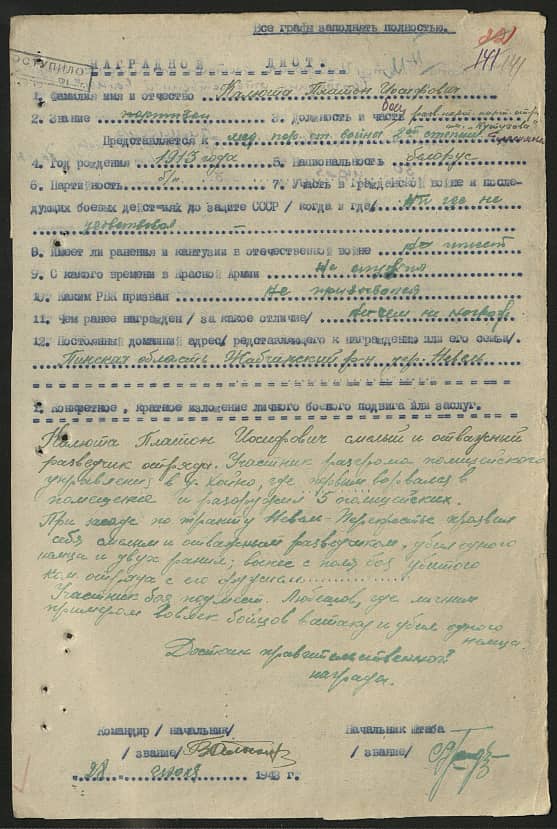 Все графы заполнять полностью.
141
НАГРАДНОЙ - ЛИСТ.
1. Фамилия имя и отчество Калюта Платон Иосифович
2. Звание партизан 3. Должность и часть боец
Представляется к мед. парт. от. войны 2ой степени
4. Год рождения 1913 года 5. Национальность белорус
6. Партийность б/п 7. Участь в Гражданской войне и после-
дующих боевых действиях до защите СССР / когда и где/ Ни где не
участвовал -
8. Имеет ли ранения и кантузии в отечественной войне Не имеет
9. С какого времени в Красной Армии Не служил
10. Каким РВК призван Не призывался
11. Чем ранее награжден / за какое отличие/ Ни чем не награж.
12. Постоянный домашний адрес/ редставляющего к награждению или его семьи/.
Пинская область Жабчинский р-н дер. Невель
1. Конкретное , краткое изложение личного боевого подвига или заслуг.
Калюта Платон Иосифович смелый и отважный
разведчик отряда. Участник разгрома полицейского
управления в д. Хойно, где первым ворвался в
помещение и разоружил 5 полицейских.
При засаде по тракту Невель-Перекрестье проявил
себя смелым и отважным разведчиком, убил одного
немца и двух ранил; вынес с поля боя убитого
ком. отряда с его оружием
Участник боя под мест. Любешов, где личным
примером вовлек бойцов в атаку и убил одного
немца.
Достоин правительственной
награды.
Командир / начальник/ Начальник штаба
/ звание/ / звание/
"28" 1943 г.